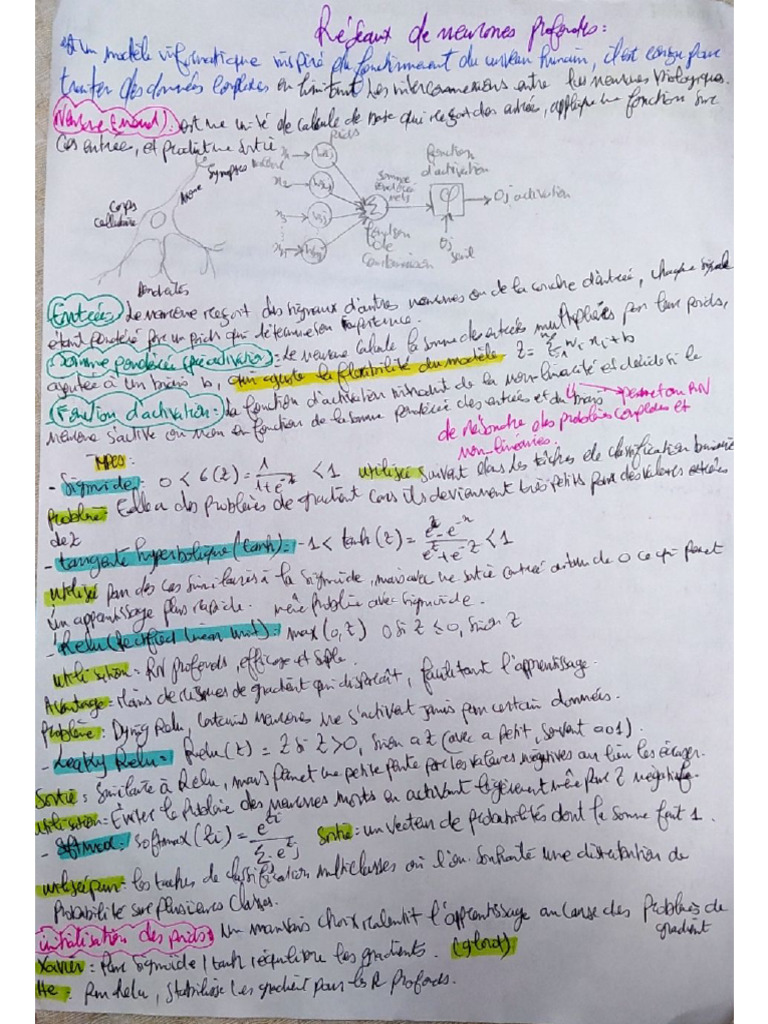 Réseaux de neurones profonds :
est un modèle informatique inspiré du fonctionnement du cerveau humain, il est conçu pour
traiter des données complexes en imitant les interconnexions entre les neurones biologiques.
Neurone (nœud) : est une unité de calcule de base qui reçoit des entrées, applique une fonction sur
ces entrée, et produit une sortie
poids
Synapses
Axone
Corps cellulaire
Dendrites
x1
x2
x3
Somme pondérée
Σ
fonction de combinaison
fonction d'activation
φ
Oj activation
Θj seuil
Entrées : Le neurone reçoit des signaux d'autres neurones ou de la couche d'entrée, chaque signale
étant pondéré par un poids qui détermine son importance.
Somme pondérée (préactivation) : Le neurone calcule la somme des entrées multipliées par leur poids,
ajoutée à un biais b, qui ajuste la flexibilité du modèle Z = Σ wi xi + b
Fonction d'activation : la fonction d'activation introduit de la non-linéarité et décide si le
neurone s'active ou non en fonction de la somme pondérée des entrées et du biais
↳ permet au RN
de résoudre des problèmes complexes et
non-linéaires.
Types :
- Sigmoïde : 0 < σ(z) = 1 / (1 + e^-z) < 1 utilisée souvent dans les tâches de classification binaire
Problème : Elle a des problèmes de gradient cars ils deviennent très petits pour des valeurs extrêmes
de z
- tangente hyperbolique (tanh) : -1 < tanh(z) = (e^z - e^-x) / (e^z + e^-z) < 1
Utilisé pour des cas similaires à la sigmoïde, mais avec une sortie centrée autour de 0 ce qui permet
un apprentissage plus rapide. même problème avec sigmoïde.
- Relu (Rectified linear Unit) : max(0, z) 0 si z ≤ 0, sinon z
Utilisation : RN profonds, efficace et simple.
Avantage : Moins de risques de gradient qui disparaît, facilitant l'apprentissage.
Problème : Dying Relu, Certains neurones ne s'activent jamais pour certain données.
- Leaky Relu : Relu(z) = z si z > 0, sinon a z (avec a petit, souvent 0.01).
Sortie : Similaire à Relu, mais permet une petite pente pour les valeurs négatives au lieu les écraser.
Utilisation : Éviter le problème des neurones morts en activant légèrement même pour z négatif.
- Softmax : Softmax(zi) = e^zi / Σj e^zj Sortie : un vecteur de probabilités dont la somme fait 1.
utilisé pour : les taches de classification multiclasses où l'on souhaite une distribution de
probabilité sur plusieurs classes.
initialisation des poids : Un mauvais choix ralentit l'apprentissage au cause des problèmes de
gradient
Xavier : Pour sigmoïde / tanh rééquilibre les gradients. (glorot)
He : Pour Relu, stabilise les gradient pour les R profonds.